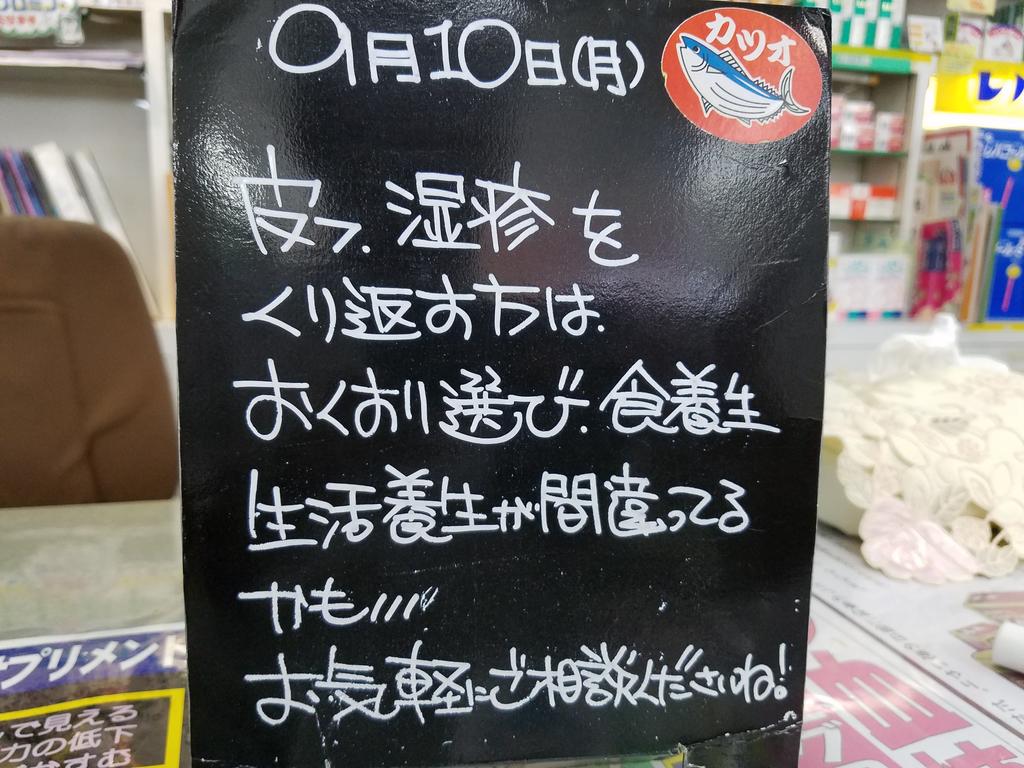 9月10日(月)
カツオ
皮フ、湿疹を
くり返す方は、
おくすり選び、食養生
生活養生が間違ってる
かも///
お気軽にご相談くださいね!
サプリメント
で見える
力の低下
かすむ